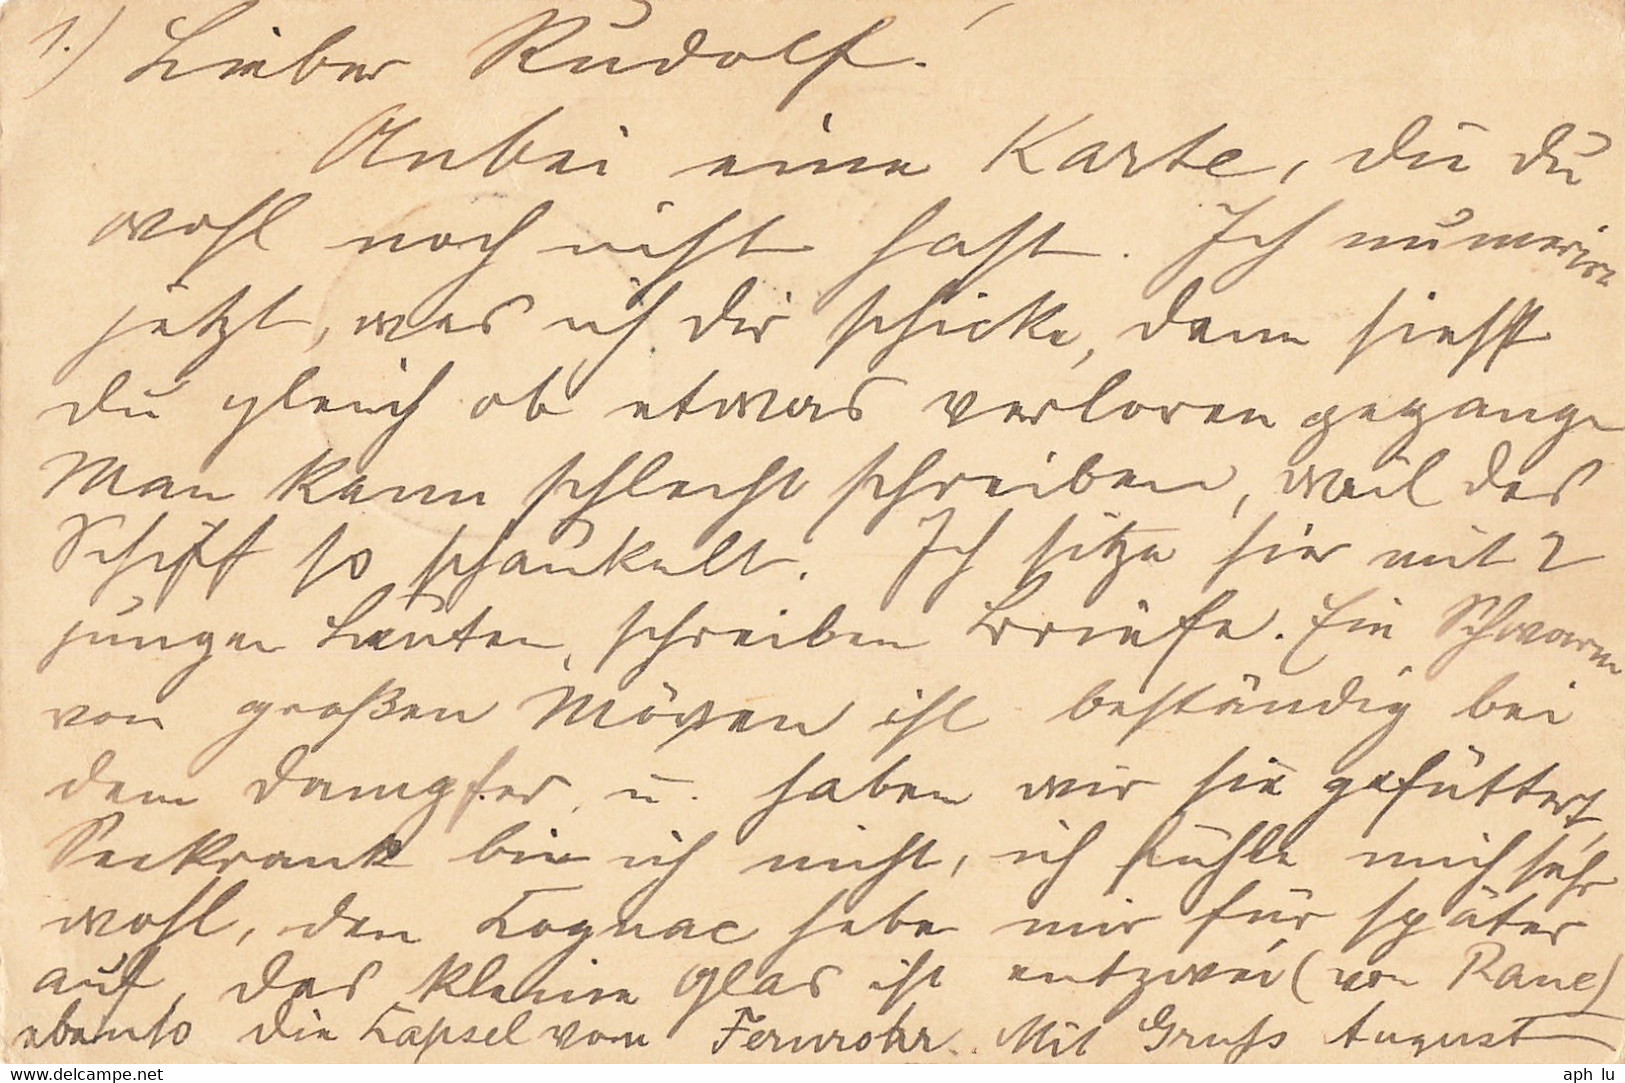 1.) Lieber Rudolf!
Anbei eine Karte, die du
wohl noch nicht hast. Ich numerire
jetzt, was ich dir schicke, dann siehst
du gleich ob etwas verloren gegangen
Man kann schlecht schreiben, weil das
Schiff so schaukelt. Ich sitze hier mit 2
jungen Leuten, schreiben Briefe. Ein Schwarm
von großen Möven ist beständig bei
dem Dampfer u. haben wir sie gefüttert,
Seekrank bin ich nicht, ich fühle mich sehr
wohl, den Cognac hebe mir für später
auf, das kleine Glas ist entzwei (von
ebenso die Kapsel vom Fernrohr. Mit Gruß August
delcampe.net
aph_lu